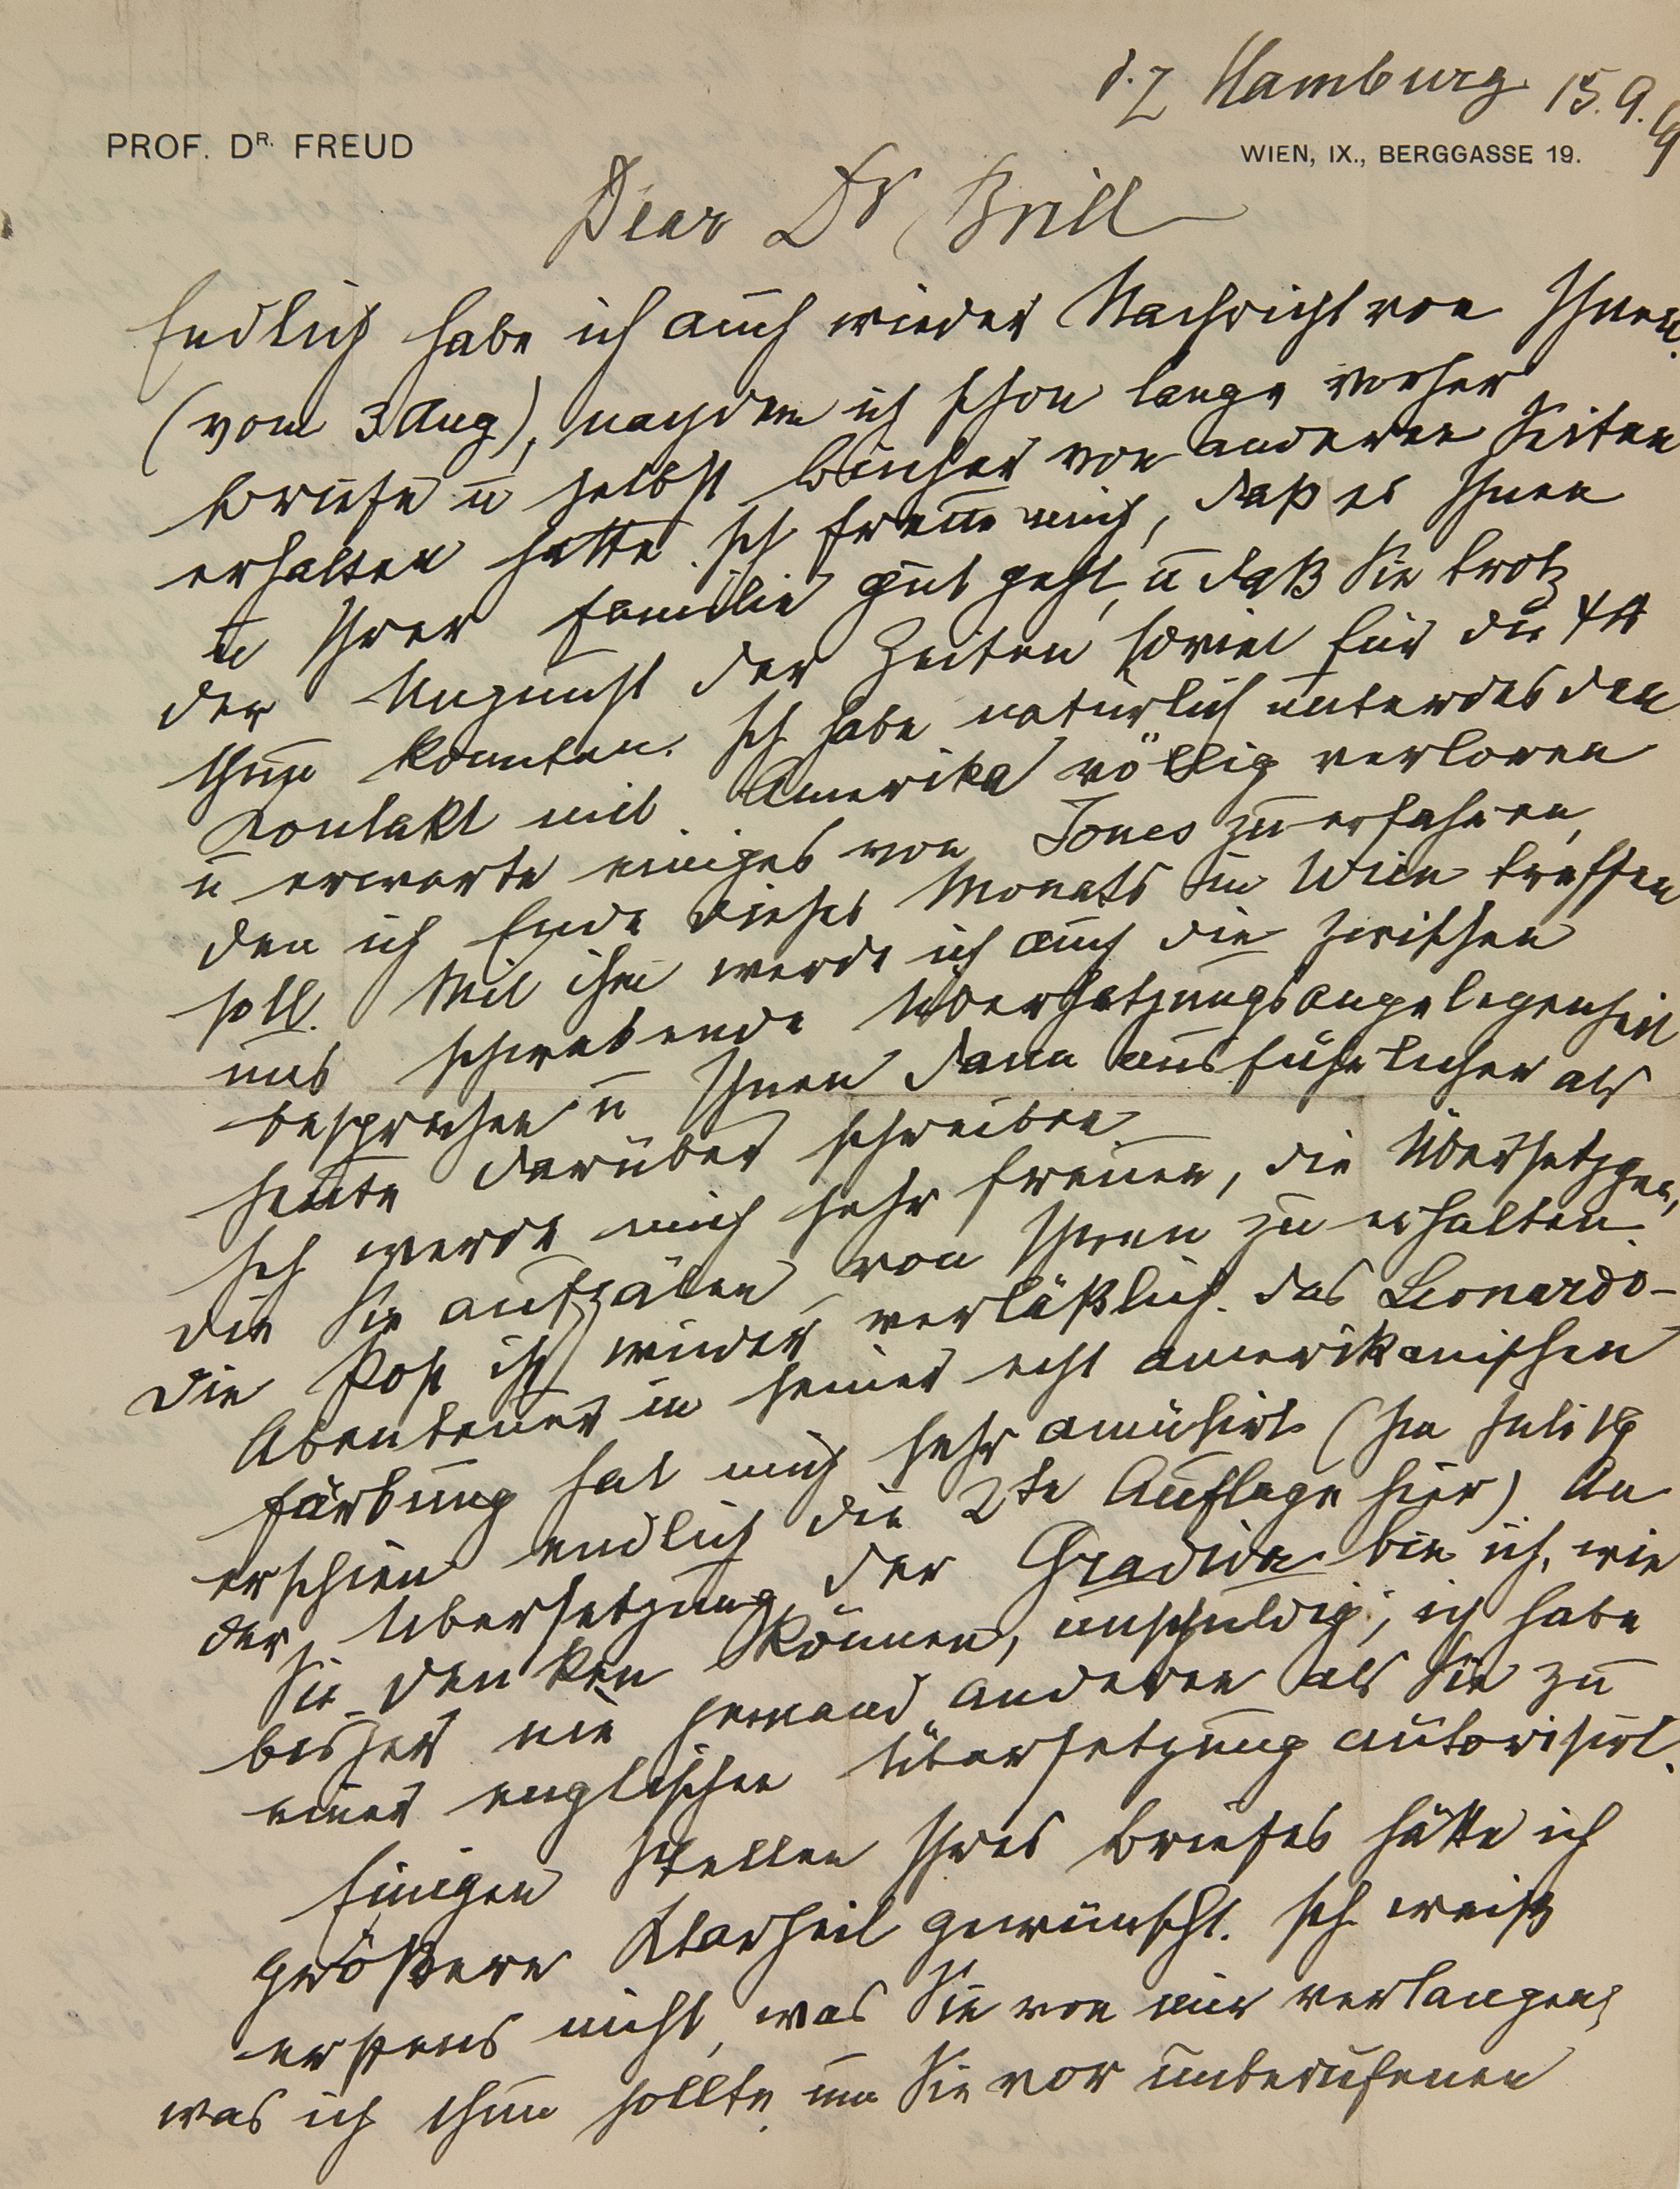 d. Z Hamburg 15.9.19
PROF. DR. FREUD
WIEN, IX., BERGGASSE 19.
Dear Dr Brill
Endlich habe ich auch wieder Nachricht von Ihnen.
(vom 3 Aug), nachdem ich schon lange vorher
Briefe u selbst Bücher von anderen Seiten
erhalten hatte. Ich freue mich, daß es Ihnen
u Ihrer Familie gut geht, u daß Sie trotz
der Ungunst der Zeiten soviel für die ΨΑ
thun konnten. Ich habe natürlich unterdes den
Kontakt mit Amerika völlig verloren
u erwarte einiges von Jones zu erfahren,
den ich Ende dieses Monats in Wien treffen
soll. Mit ihm werde ich auch die zwischen
uns schwebende Übersetzungsangelegenheit
besprechen u Ihnen dann ausführlicher als
heute darüber schreiben
Ich werde mich sehr freuen, die Übersetzgen,
die Sie aufzälen, von Ihnen zu erhalten.
Die Post ist wieder verläßlich. Das Leonardo-
Abenteuer in seiner echt amerikanischen
Färbung hat mich sehr amüsirt (Im Juli 19
erschien endlich die 2te Auflage hier) An
der Übersetzung der Gradiva bin ich, wie
Sie denken können, unschuldig; ich habe
bisher nie jemand anderen als Sie zu
einer englischen Übersetzung autorisirt.
Einigen Stellen Ihres Briefes hätte ich
größere Klarheit gewünscht. Ich weiß
erstens nicht, was Sie von mir verlangen,
was ich thun sollte, um Sie vor unberufenen